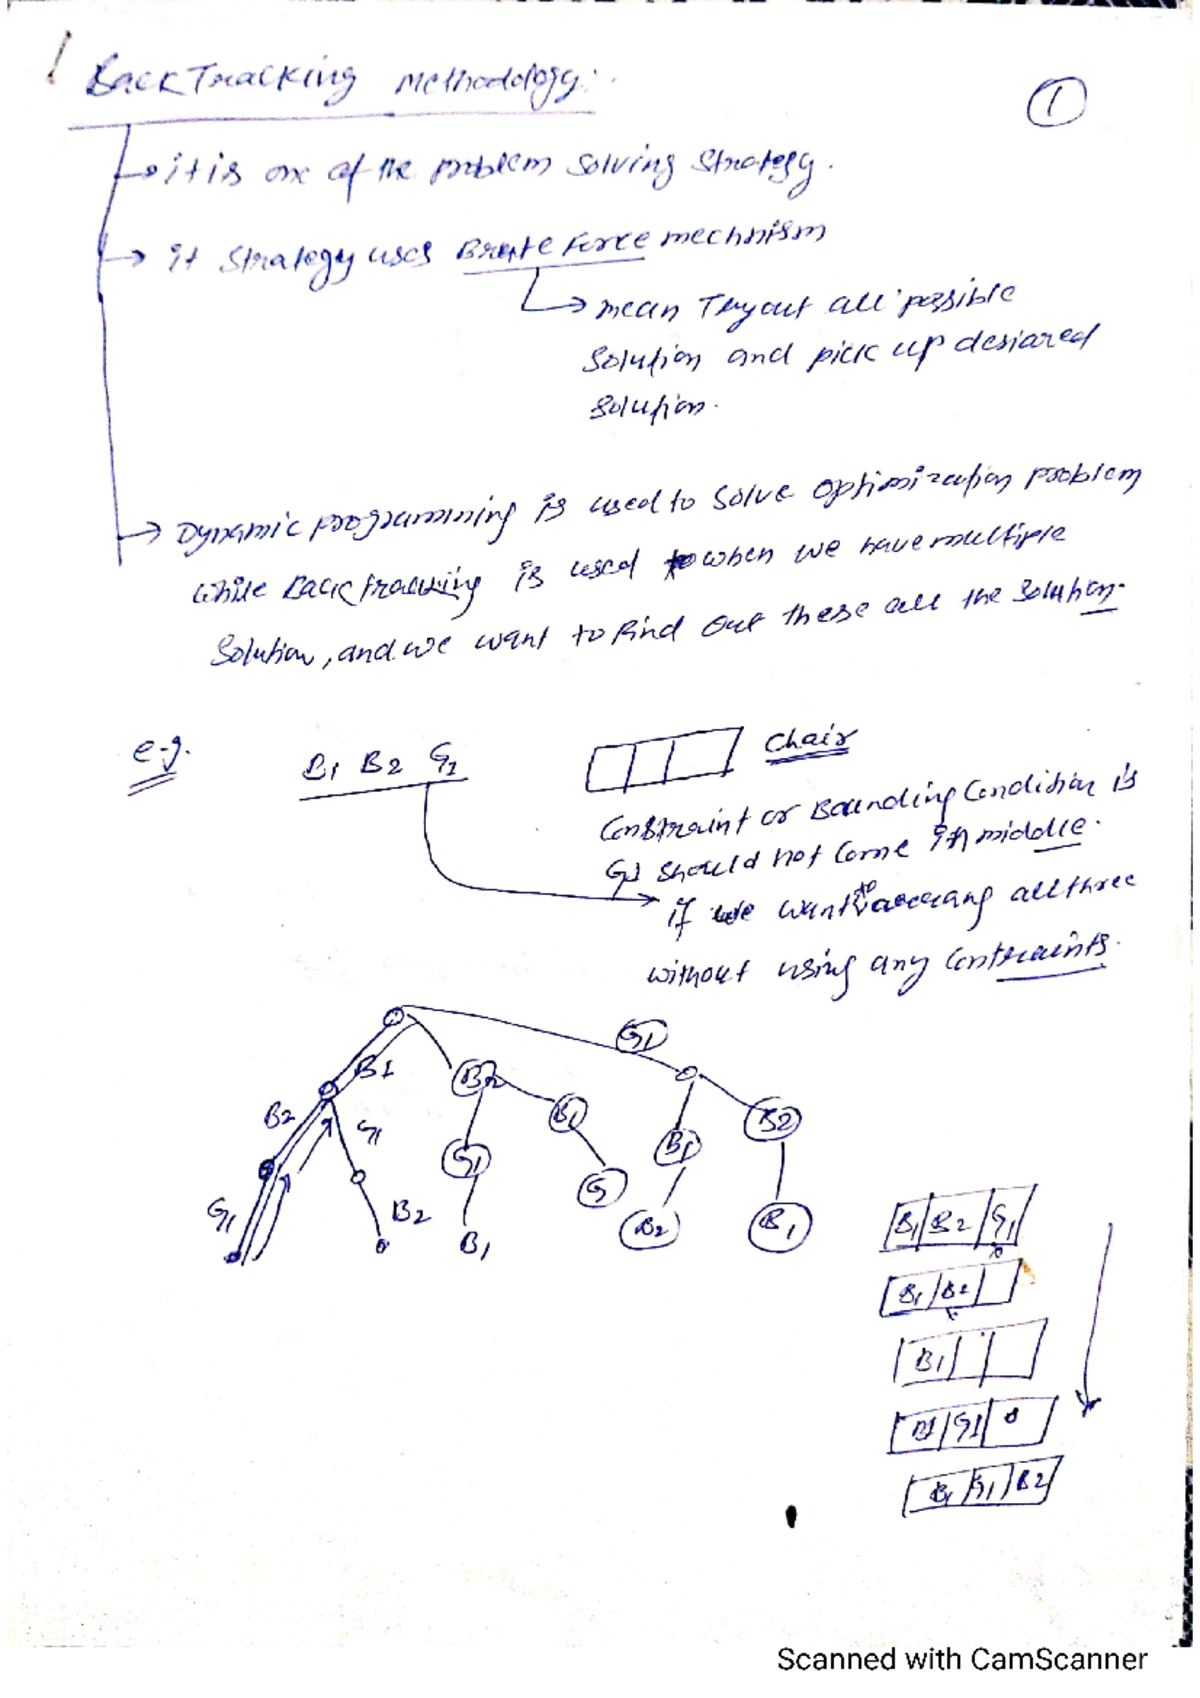 BackTracking Methodology:
1
it is one of the problem solving strategy.
it strategy uses Brute Force mechnism
mean Tryout all possible
Solution and pick up desiared
Solution.
Dynamic programming is used to solve optimization problem
while Backtracking is used when we have multiple
Solution, and we want to find out these all the solution.
e.g.
B1 B2 G1
Chair
Constraint or Bounding Condition is
G1 should not come in middle.
if we want to accrang all three
without using any contraints.
G1
B1
B2
B2
G1
B1
B2
G1
B1
G1
G
B2
B1
B2
B1
B1 B2 G1
B1 B2
B1
B1 G1
B1 G1 B2
Scanned with CamScanner